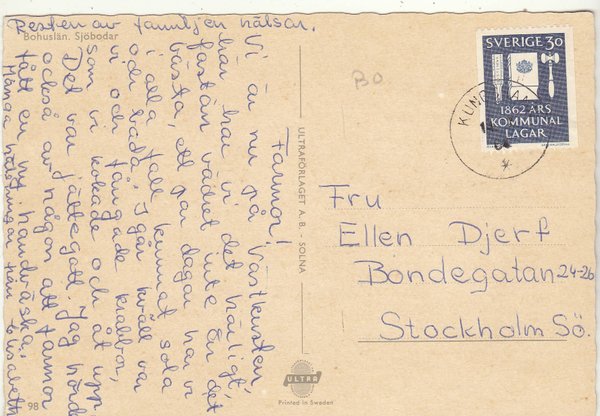 Resten av familjen hälsar.
Bohuslän. Sjöbodar
Farmor!
Vi är nu på Västkusten,
här har vi det härligt,
fastän vädret inte är det
bästa, ett par dagar har vi
i alla fall kunnat sola
och bada. I går kväll var
vi och fångade krabbor,
som vi kokade och åt upp
Det var jättegott. Jag hörde
också av någon att farmor
fått en ny handväska.
Många hälsningar från Elisabeth
98
ULTRAFÖRLAGET A. B. - SOLNA
ULTRA
Printed in Sweden
BO
SVERIGE 30
1862 ÅRS
KOMMUNAL
LAGAR
Fru
Ellen Djerf
Bondegatan 24-26
Stockholm Sö.